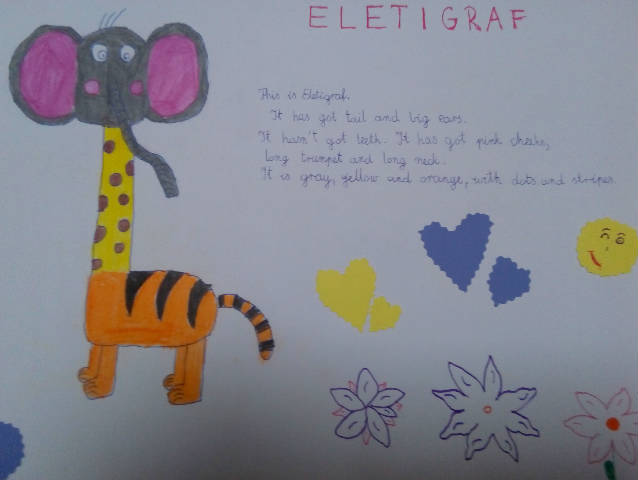 ELETIGRAF
This is Eletigraf.
It has got tail and big ears.
It hasn't got teeth. It has got pink cheeks,
long trumpet and long neck.
It is gray, yellow and orange, with dots and stripes.